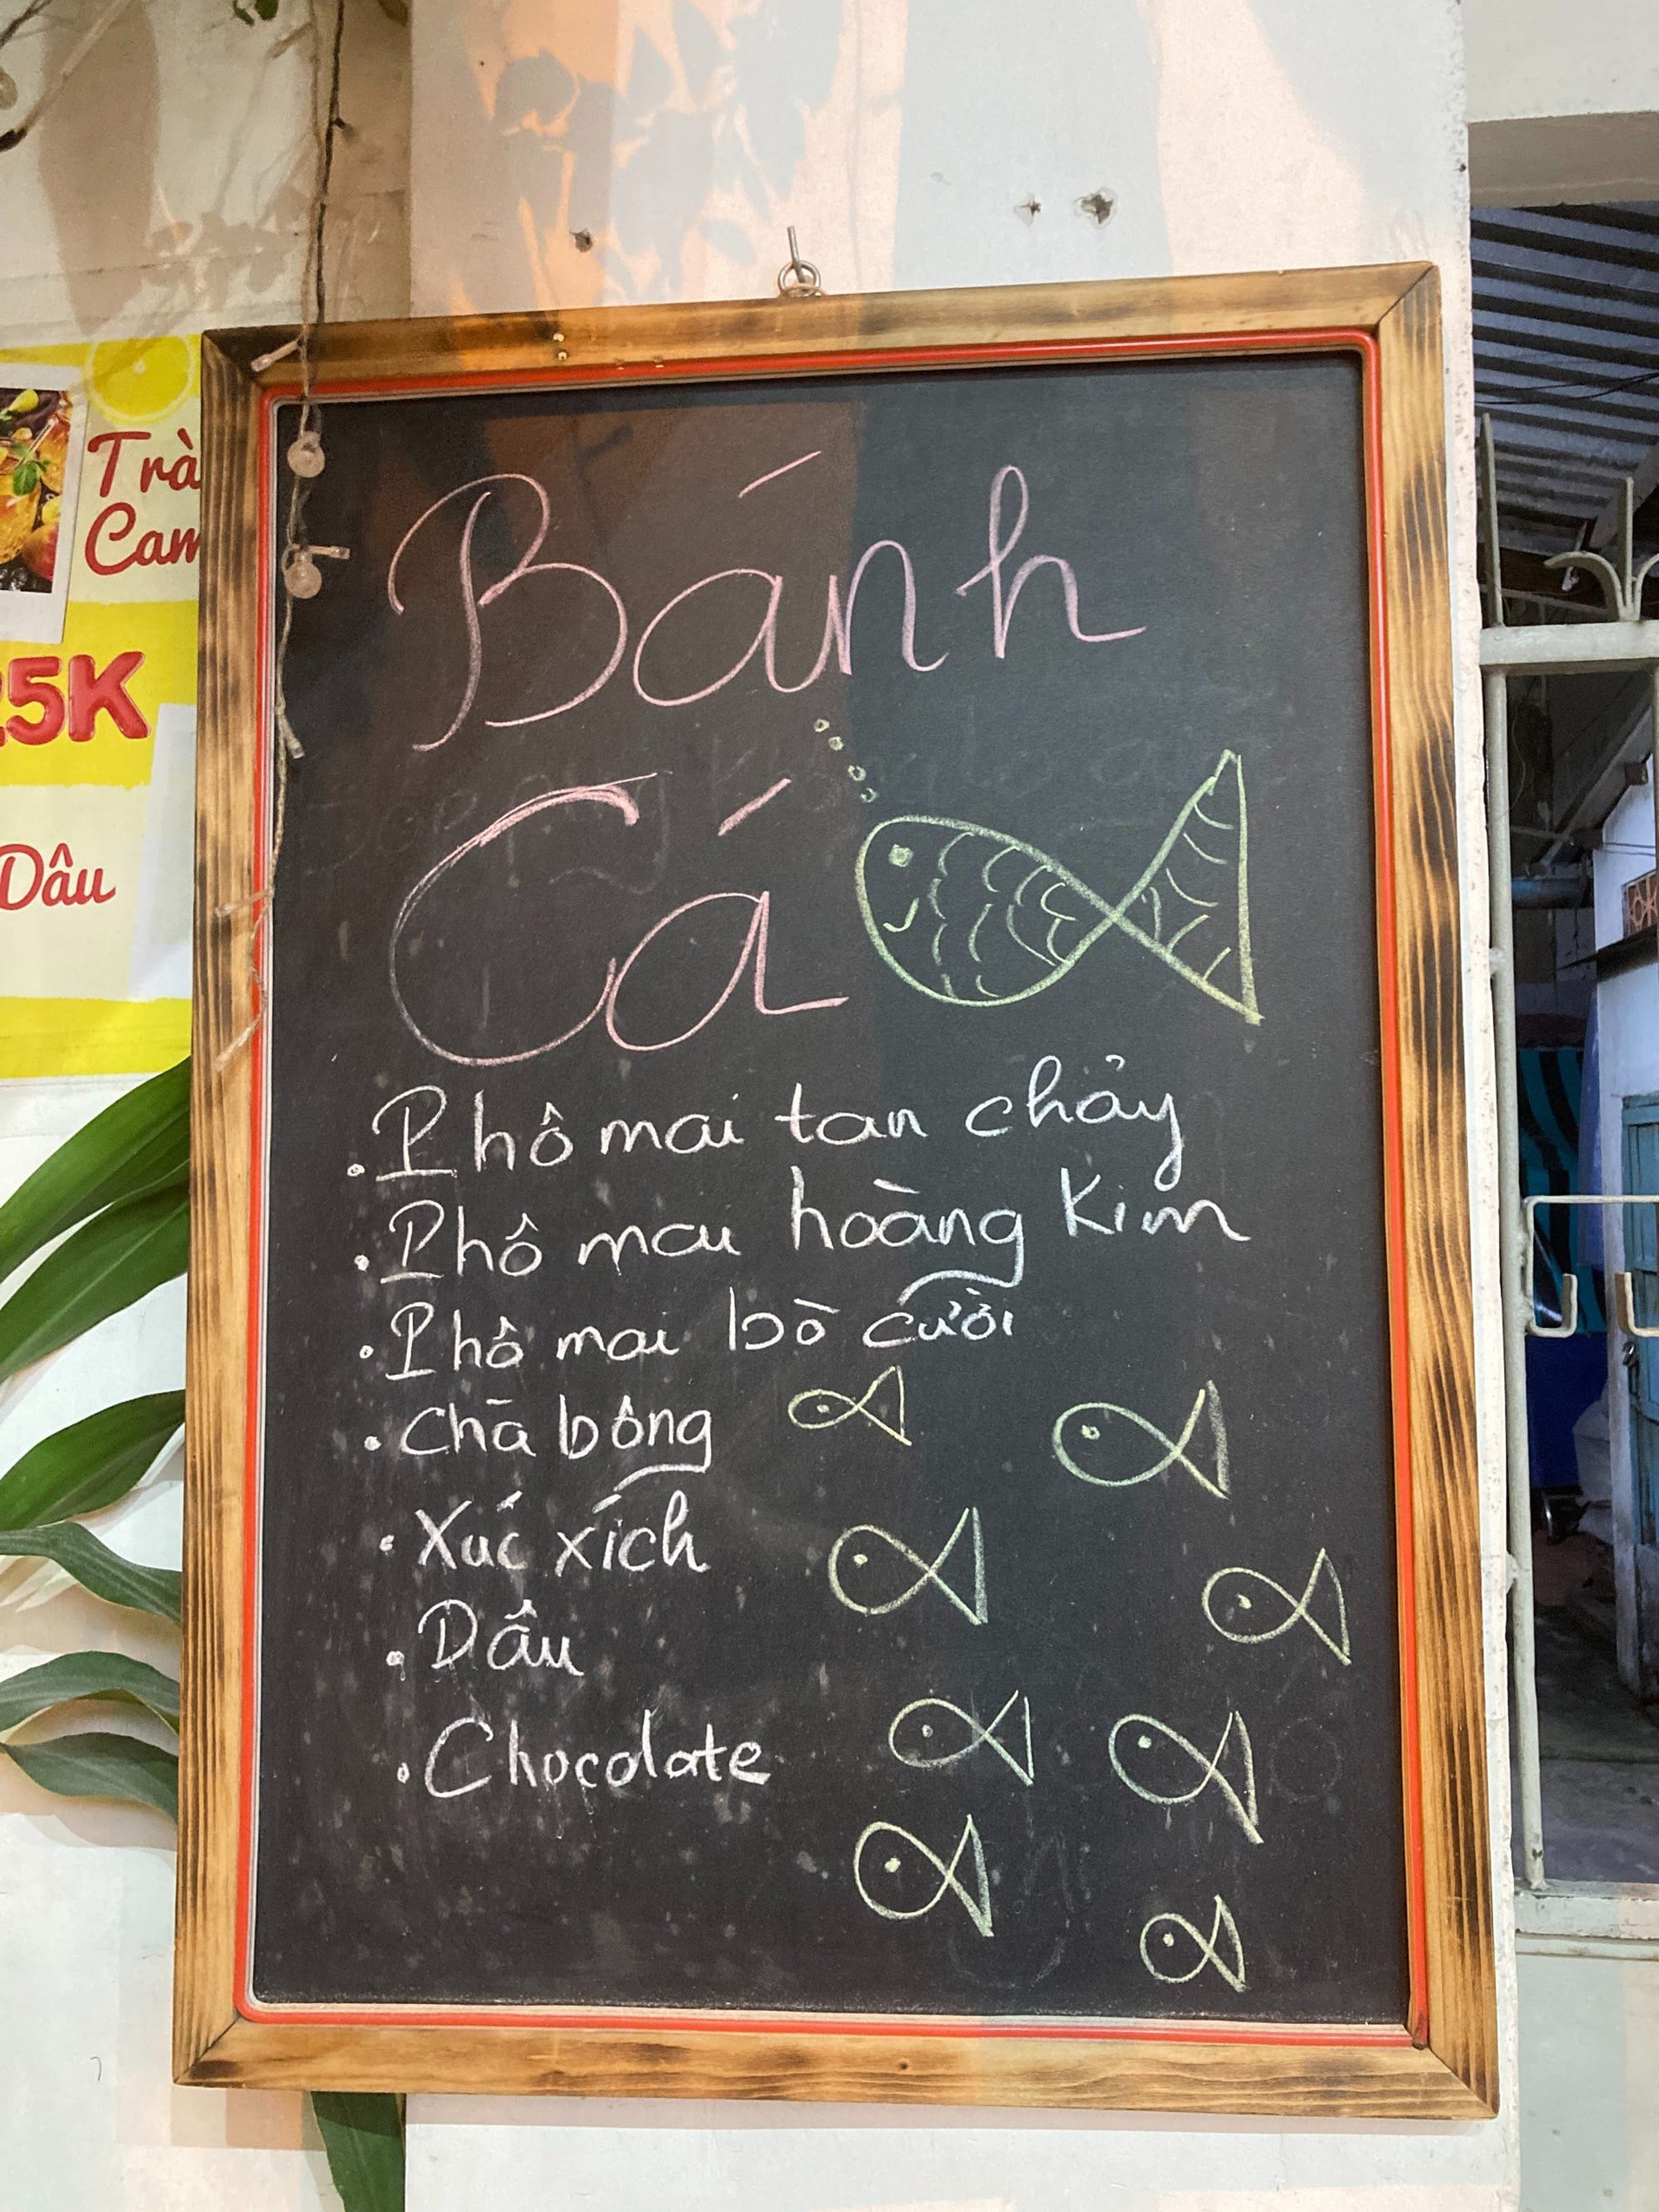 Trà
Cam
25K
Dâu
Bánh
Cá
. Phô mai tan chảy
. Phô mai hoàng Kim
. Phô mai bò cười
. Chà bông
. Xúc xích
. Dâu
. Chocolate